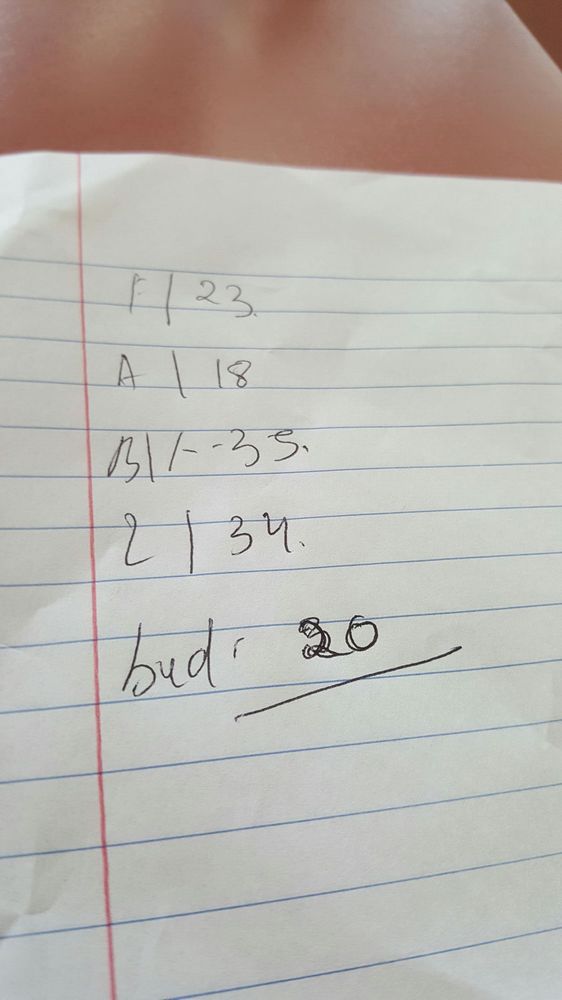 F | 23.
A | 18
B | 35.
2 | 34.
bud: